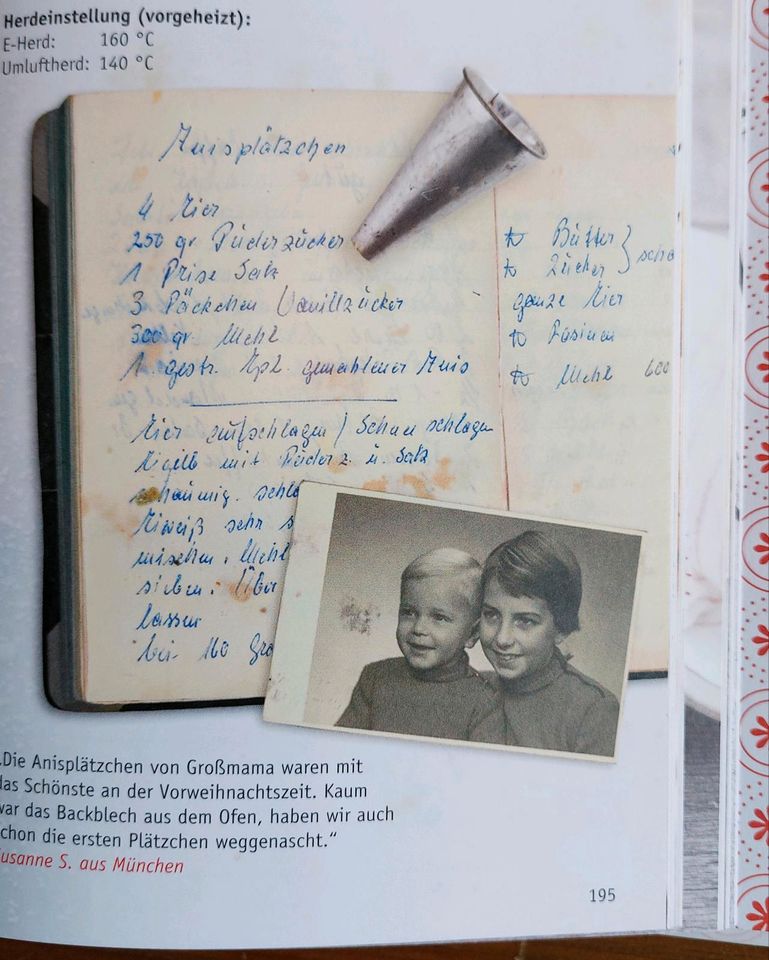 Herdeinstellung (vorgeheizt):
E-Herd: 160 °C
Umluftherd: 140 °C
Anisplätzchen
4 Eier
250 gr Puderzucker
1 Prise Salz
3 Päckchen Vanillzucker
300 gr Mehl
1 gestr. Epl. gemahlener Anis
Eier aufschlagen / Schnee schlagen
Eigelb mit Puderz u. Salz
schaumig. schla
Eiweiß sehr s
mischen. Mehl
sieben. Über
lassen
bei 160 Gra
Butter
Zucker scha
ganze Eier
Rosinen
Mehl 600
„Die Anisplätzchen von Großmama waren mit
das Schönste an der Vorweihnachtszeit. Kaum
war das Backblech aus dem Ofen, haben wir auch
schon die ersten Plätzchen weggenascht.“
Susanne S. aus München
195